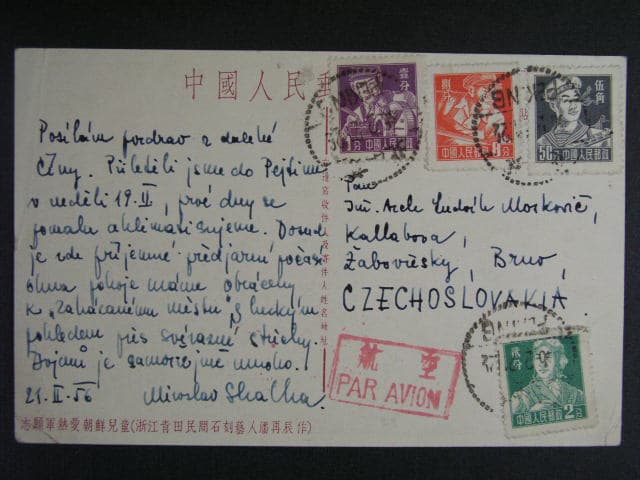 中國人民郵
Posílám pozdrav z daleké
Číny. Přiletěli jsme do Pejtinu
v neděli 19.II, prvé dny se
pomalu aklimatisujeme. Dosud
je zde příjemné předjarní počasí
okna pokoje máme obráceny
k "Zakázanému městu" s hezkým
pohledem přes svérázné střechy.
Dojmů je samozřejmě mnoho.
21.II.56 Miroslav Skalka
志願軍熱愛朝鮮兒童(浙江青田民間石刻藝人潘再辰作)
壹分
1分
中國人民郵政
捌分
8分
中國人民郵政
伍角
50分
中國人民郵政
PEKING
Pan
Ing. Arch. Ludvík
Kallabova,
Žabovřesky, Brno,
CZECHOSLOVAKIA
航空
PAR AVION
PEKING
貳分
中國人民郵政
2分